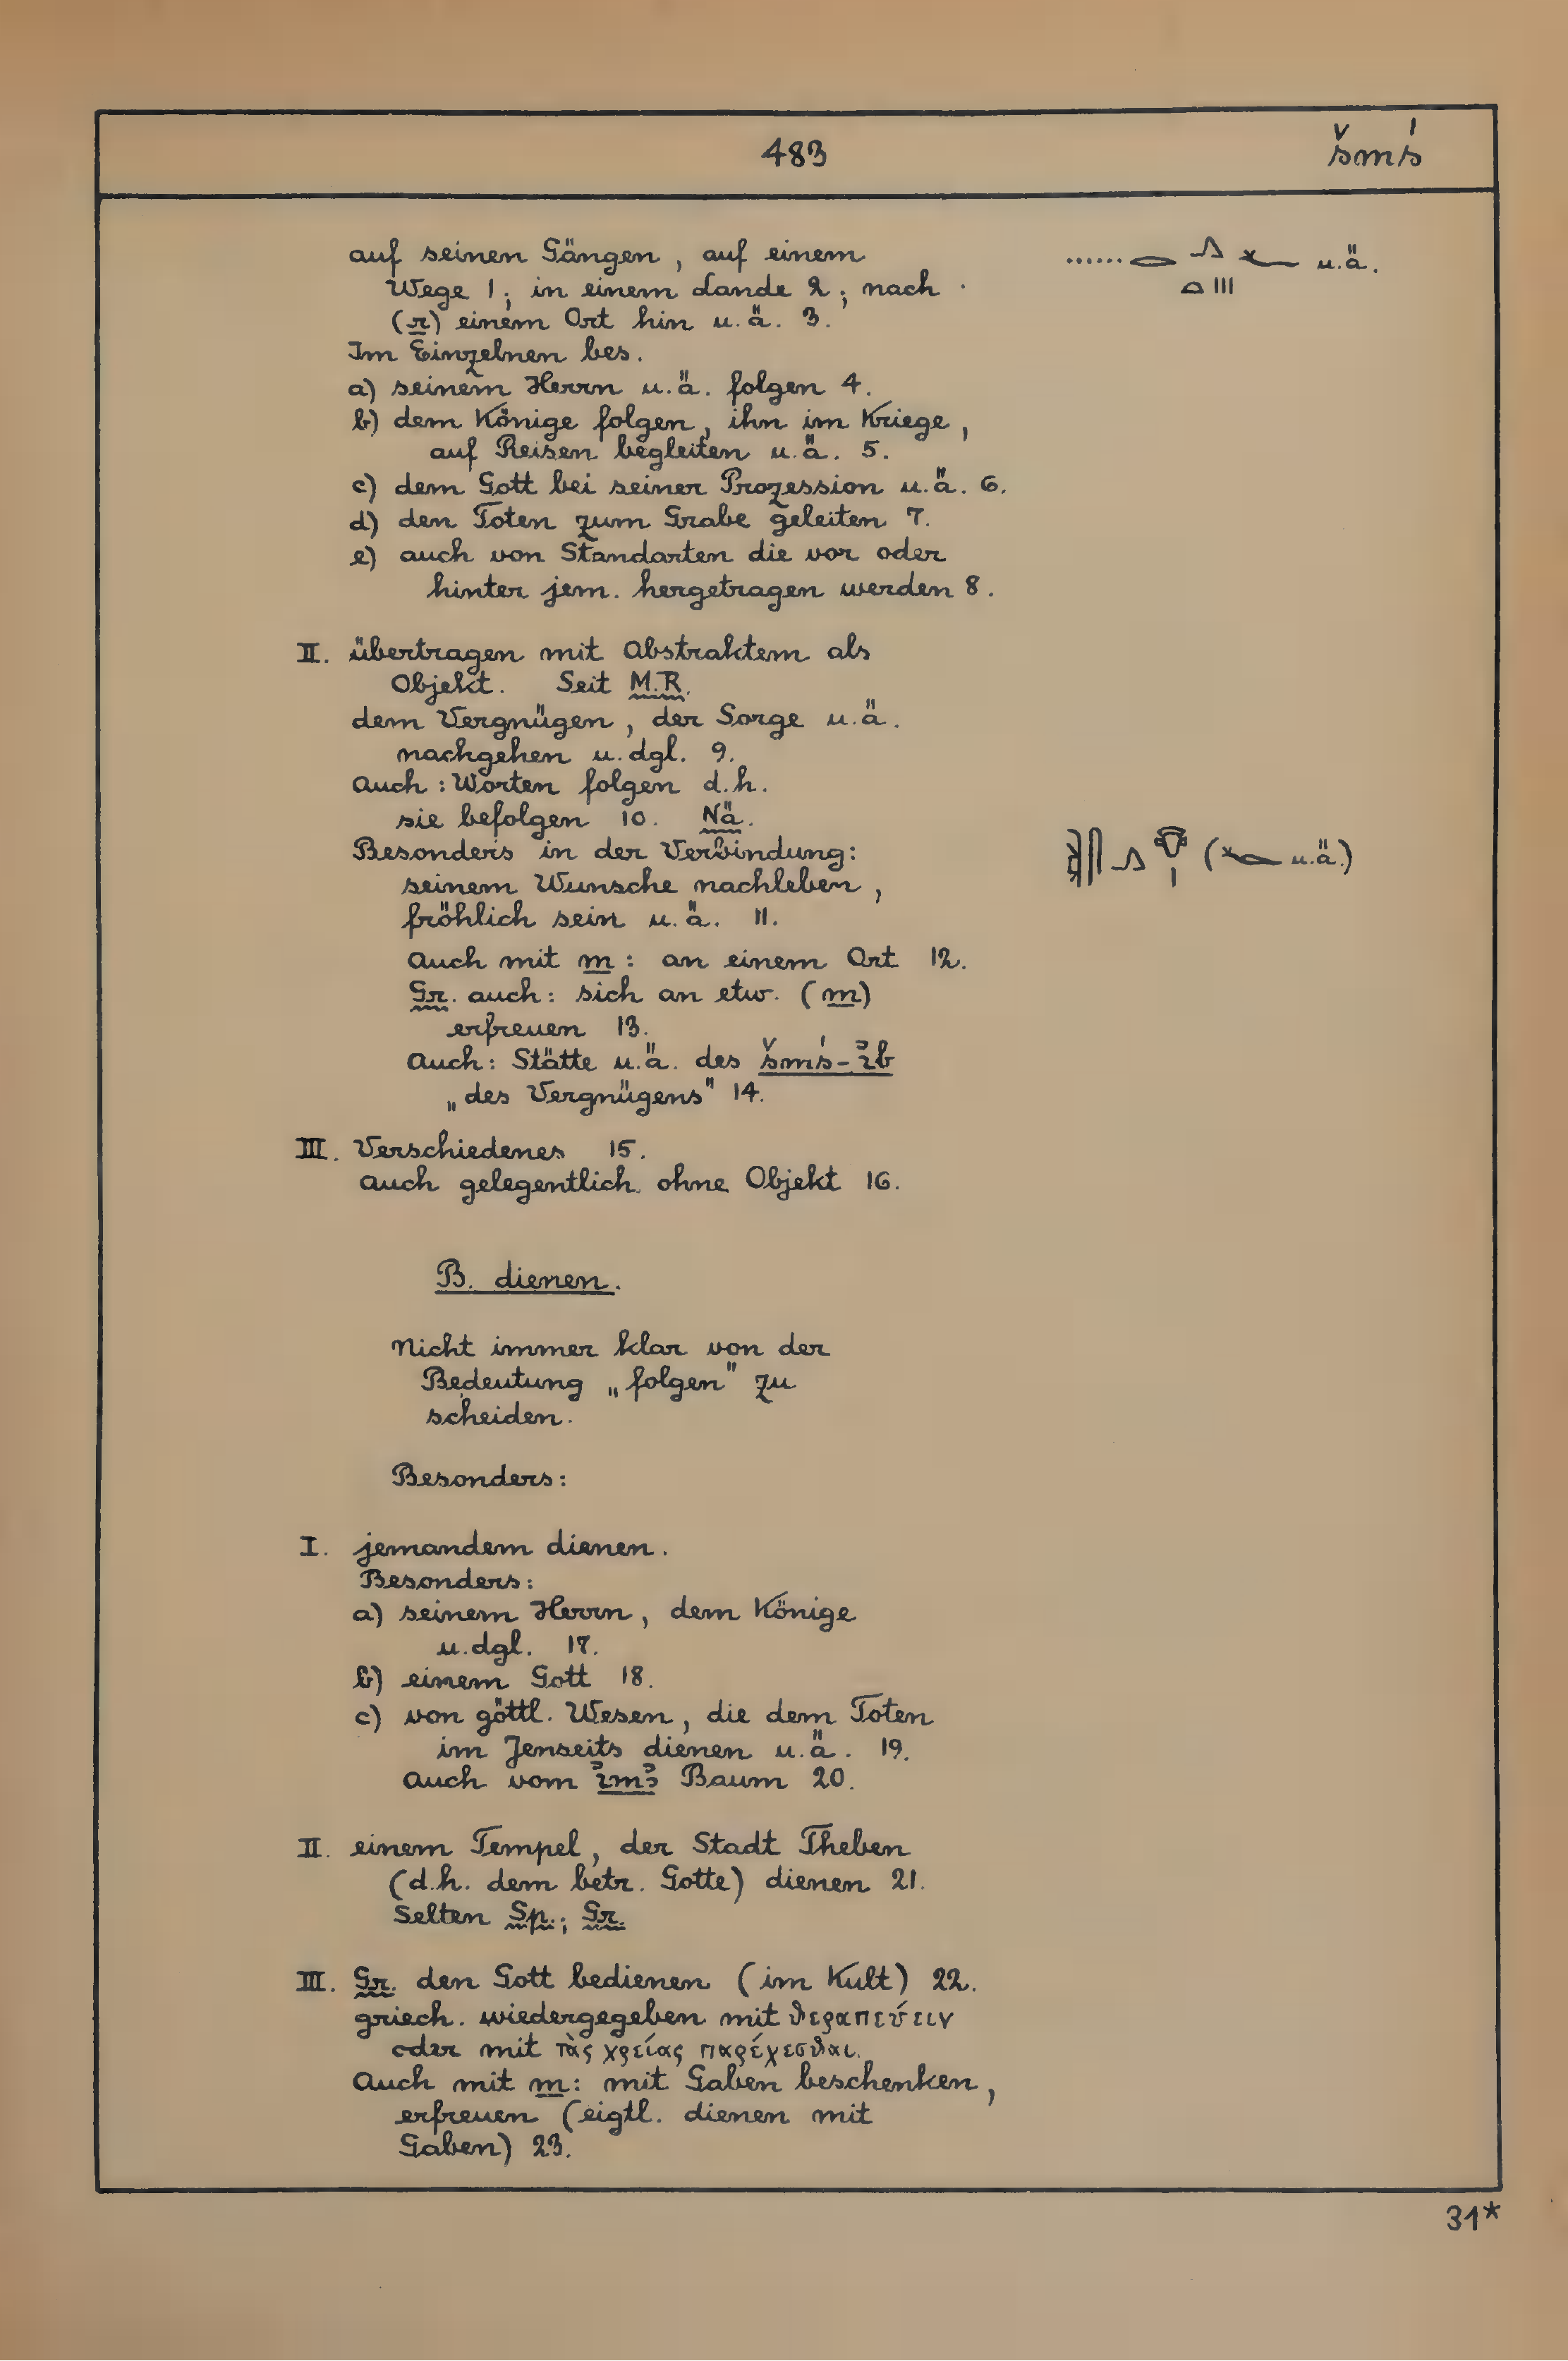 483 šmś
auf seinen Gängen, auf einem u.ä.
Wege 1; in einem Lande 2; nach
(r) einem Ort hin u.ä. 3.
Im Einzelnen bes.
a) seinem Herrn u.ä. folgen 4.
b) dem Könige folgen, ihn im Kriege,
auf Reisen begleiten u.ä. 5.
c) dem Gott bei seiner Prozession u.ä. 6.
d) den Toten zum Grabe geleiten 7.
e) auch von Standarten die vor oder
hinter jem. hergetragen werden 8.
II. übertragen mit Abstraktem als
Objekt. Seit M.R.
dem Vergnügen, der Sorge u.ä.
nachgehen u.dgl. 9.
Auch: Worten folgen d.h.
sie befolgen 10. Nä.
Besonders in der Verbindung: 𓌞𓋴𓂻𓄣𓏤 (𓆑 u.ä.)
seinem Wunsche nachleben,
fröhlich sein u.ä. 11.
Auch mit m: an einem Ort 12.
Gr. auch: sich an etw. (m)
erfreuen 13.
Auch: Stätte u.ä. des šmś-ỉb
„des Vergnügens" 14.
III. Verschiedenes 15.
Auch gelegentlich ohne Objekt 16.
B. dienen.
Nicht immer klar von der
Bedeutung „folgen" zu
scheiden.
Besonders:
I. jemandem dienen.
Besonders:
a) seinem Herrn, dem Könige
u.dgl. 17.
b) einem Gott 18.
c) von göttl. Wesen, die dem Toten
im Jenseits dienen u.ä. 19.
Auch vom ỉmꜣ Baum 20.
II. einem Tempel, der Stadt Theben
(d.h. dem betr. Gotte) dienen 21.
Selten Sp.; Gr.
III. Gr. den Gott bedienen (im Kult) 22.
griech. wiedergegeben mit ϑεραπεύειν
oder mit τὰς χρείας παρέχεσϑαι.
Auch mit m: mit Gaben beschenken,
erfreuen (eigtl. dienen mit
Gaben) 23.
31*